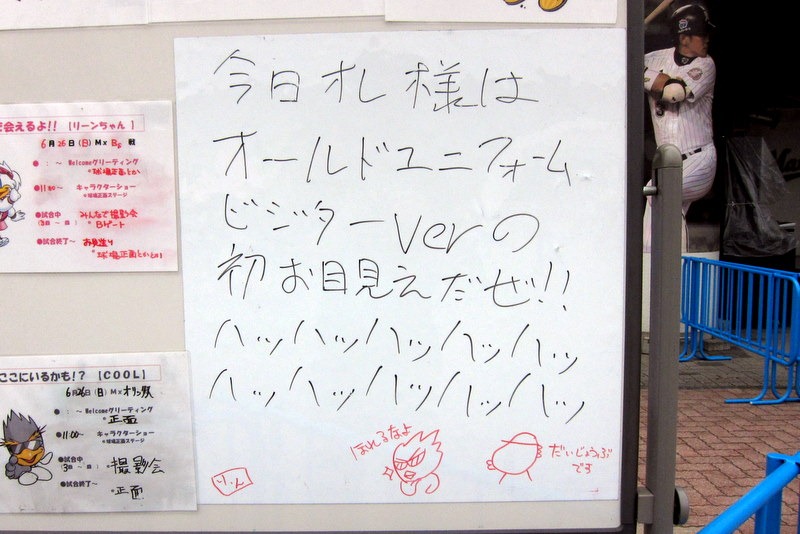 で会えるよ!! 【リーンちゃん】
6月26日(日) M×Bs 戦
●  : ～ Welcomeグリーティング
*球場正面とか
●11:00～ キャラクターショー
*球場正面ステージ
●試合中 みんなで撮影会
(3回 ～ 回) *Bゲート
●試合終了～ お見送り
*球場正面とかとか!
ここにいるかも!? 【COOL】
6月26日(日) M×オリックス戦
●  : ～ Welcomeグリーティング
*正面
●11:00～ キャラクターショー
*球場正面ステージ
●試合中
(3回 ～ 回) *撮影会
●試合終了～
*正面
今日オレ様は
オールドユニフォーム
ビジターverの
初お目見えだぜ!!
ハッハッハッハッハッ
ハッハッハッハッハッ
ほれるなよ
だいじょうぶ
です
りーん